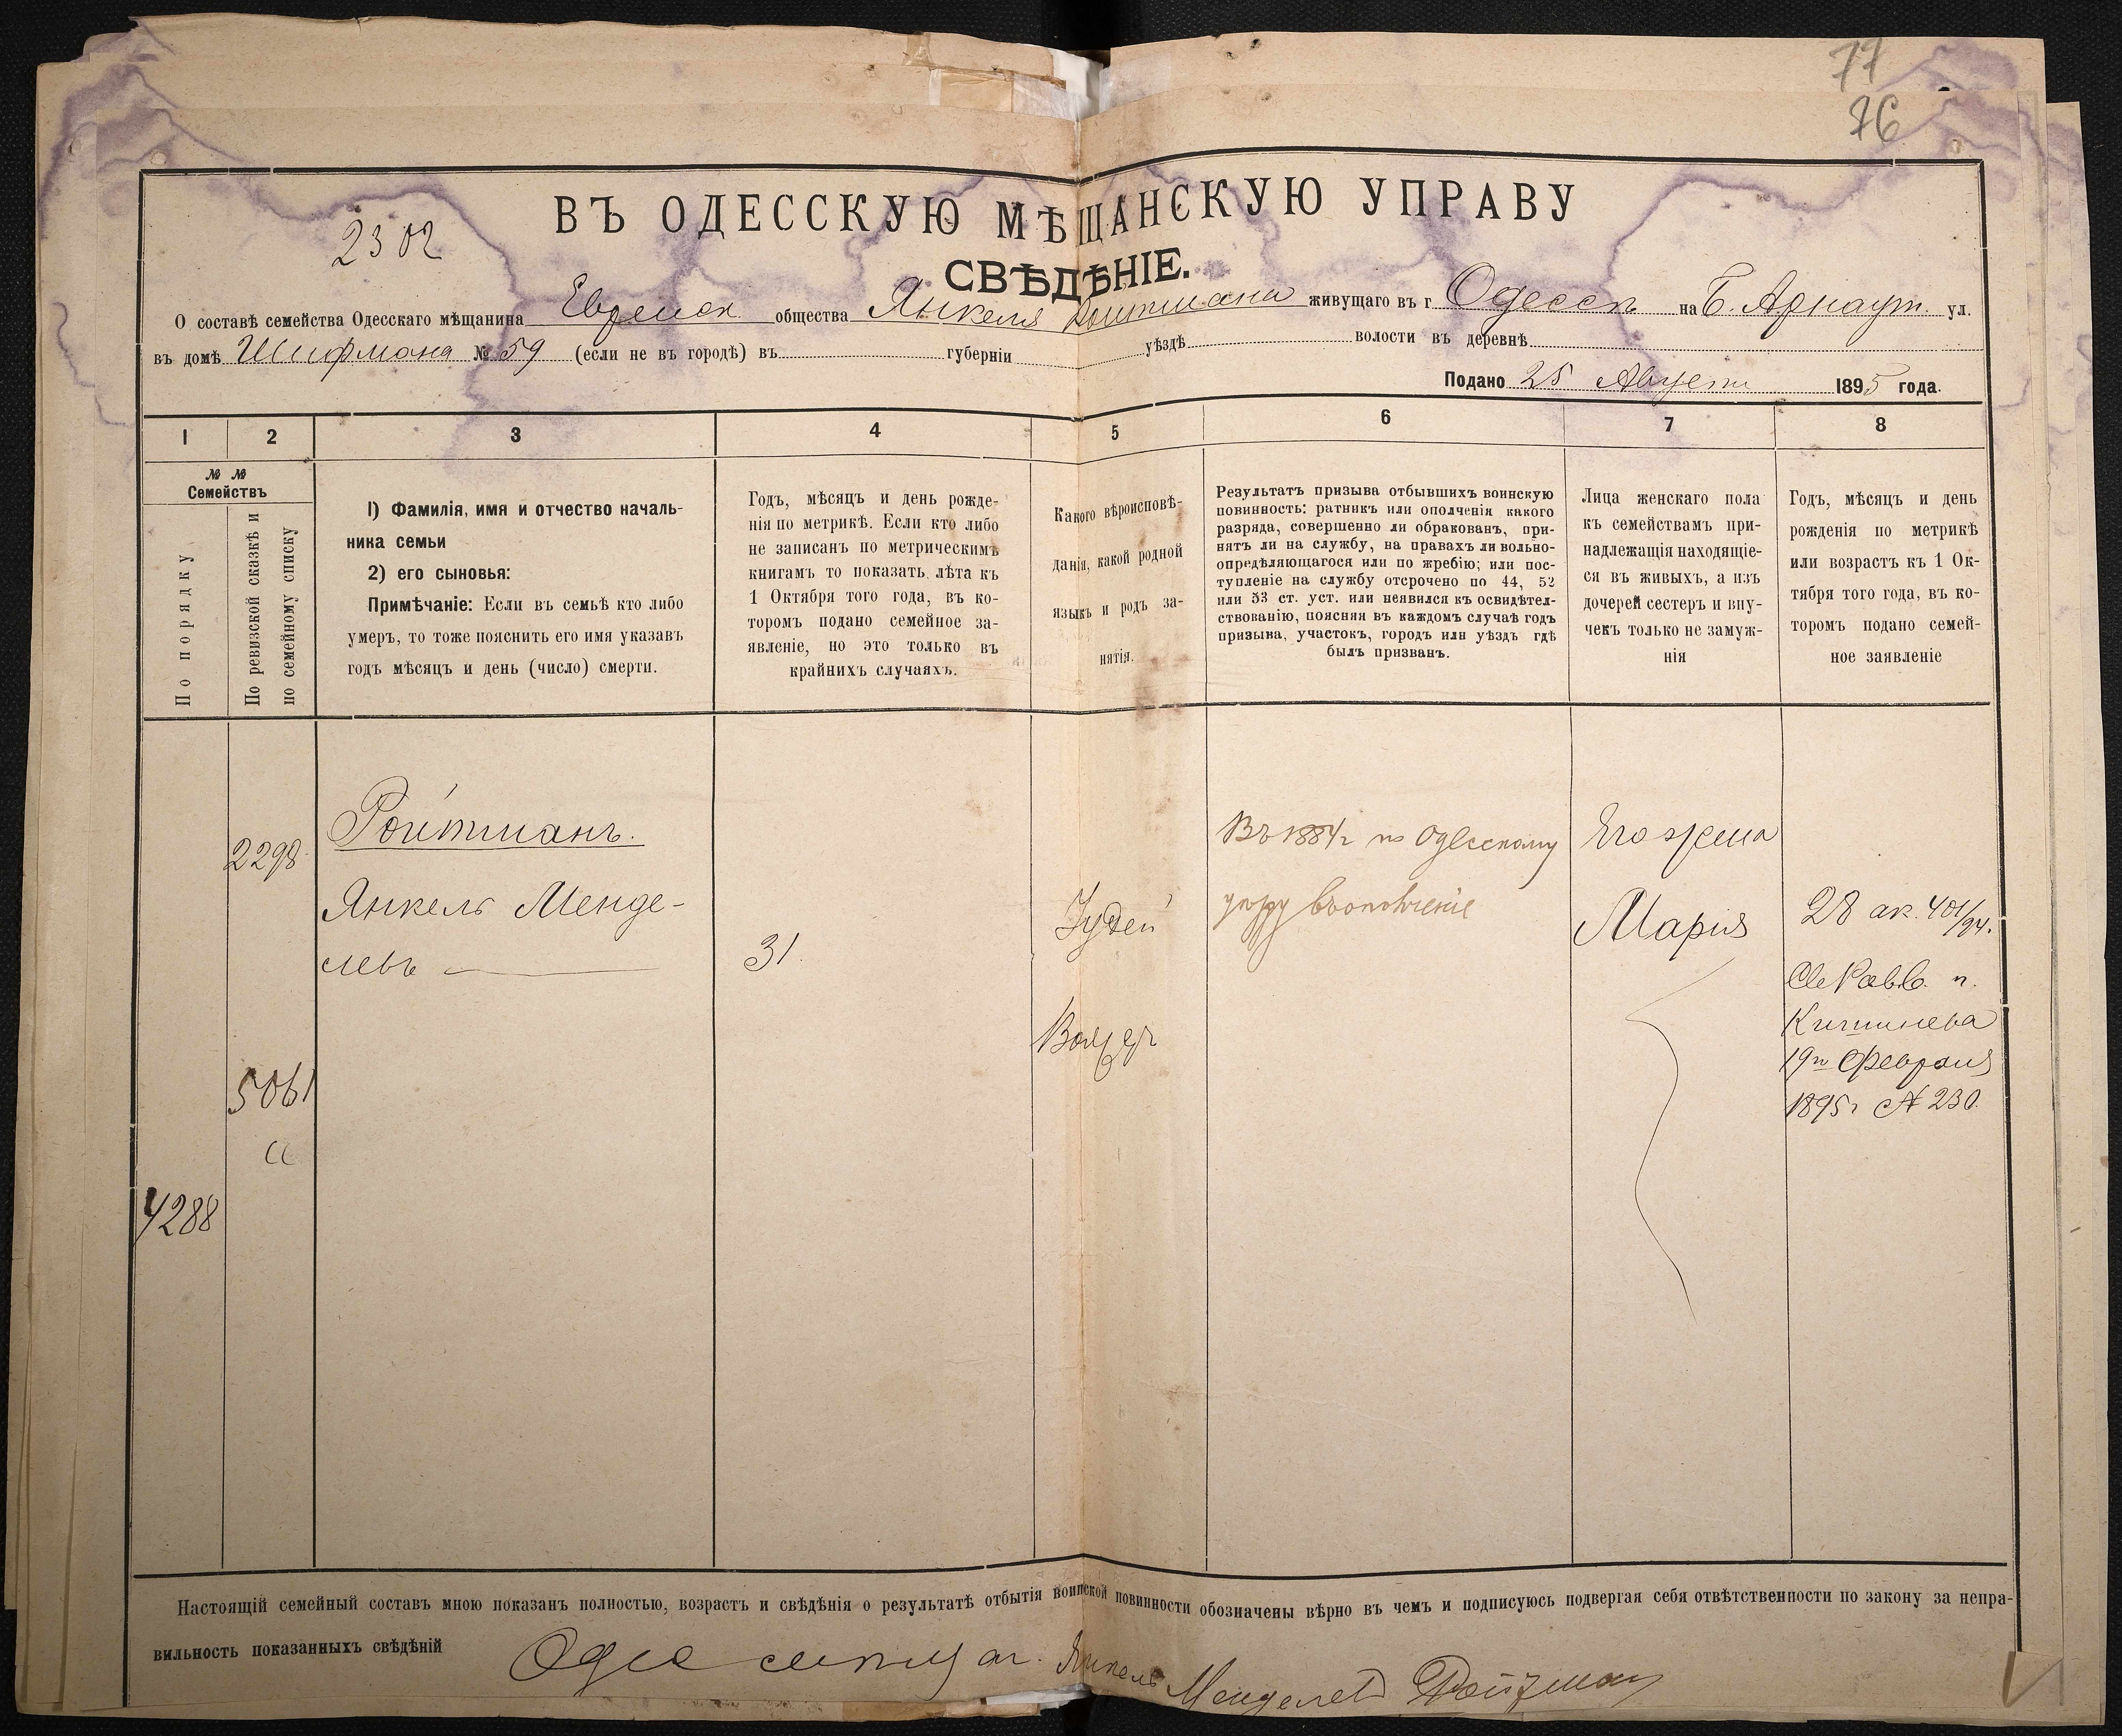 77
76
ВЪ ОДЕССКУЮ МѢЩАНСКУЮ УПРАВУ
2302
СВѢДѢНІЕ.
О составѣ семейства Одесскаго мѣщанина Еврейск. общества Янкеля Ройтмана живущаго въ г. Одессѣ на Б. Арнаут. ул.
въ домѣ Шифмана № 59 (если не въ городѣ) въ губерніи уѣздѣ волости въ деревнѣ
Подано 25 Августа 1895 года.
1 2 3 4 5 6 7 8
№ №
Семействъ
По порядку
По ревизской сказкѣ и
по семейному списку
1) Фамилія, имя и отчество началь-
ника семьи
2) его сыновья:
Примѣчаніе: Если въ семьѣ кто либо
умеръ, то тоже пояснить его имя указавъ
годъ мѣсяцъ и день (число) смерти.
Годъ, мѣсяцъ и день рожде-
нія по метрикѣ. Если кто либо
не записанъ по метрическимъ
книгамъ то показать лѣта къ
1 Октября того года, въ ко-
торомъ подано семейное за-
явленіе, но это только въ
крайнихъ случаяхъ.
Какого вѣроисповѣ-
данія, какой родной
языкъ и родъ за-
нятія.
Результатъ призыва отбывшихъ воинскую
повинность: ратникъ или ополченія какого
разряда, совершенно ли обракованъ, при-
нятъ ли на службу, на правахъ ли вольно-
опредѣляющагося или по жребію; или пос-
тупленіе на службу отсрочено по 44, 52
или 53 ст. уст. или неявился къ освидѣтел-
ствованію, поясняя въ каждомъ случаѣ годъ
призыва, участокъ, городъ или уѣздъ гдѣ
былъ призванъ.
Лица женскаго пола
къ семействамъ при-
надлежащія находящіе-
ся въ живыхъ, а изъ
дочерей сестеръ и вну-
чекъ только не замуж-
нія
Годъ, мѣсяцъ и день
рожденія по метрикѣ
или возрастъ къ 1 Ок-
тября того года, въ ко-
торомъ подано семей-
ное заявленіе
2298
Ройтманъ.
Янкель Менде-
левъ
31.
Іудей
Въ 1884 г по Одесскому
въ ополченіе
Его жена
Марія
28 ак. 401/94.
Кишинева
19го Февраля
1895 г № 230.
5061
4288
Настоящій семейный составъ мною показанъ полностью, возрастъ и свѣдѣнія о результатѣ отбытія воинской повинности обозначены вѣрно въ чемъ и подписуюсь подвергая себя отвѣтственности по закону за непра-
вильность показанныхъ свѣдѣній
Янкель Менделев Ройзман